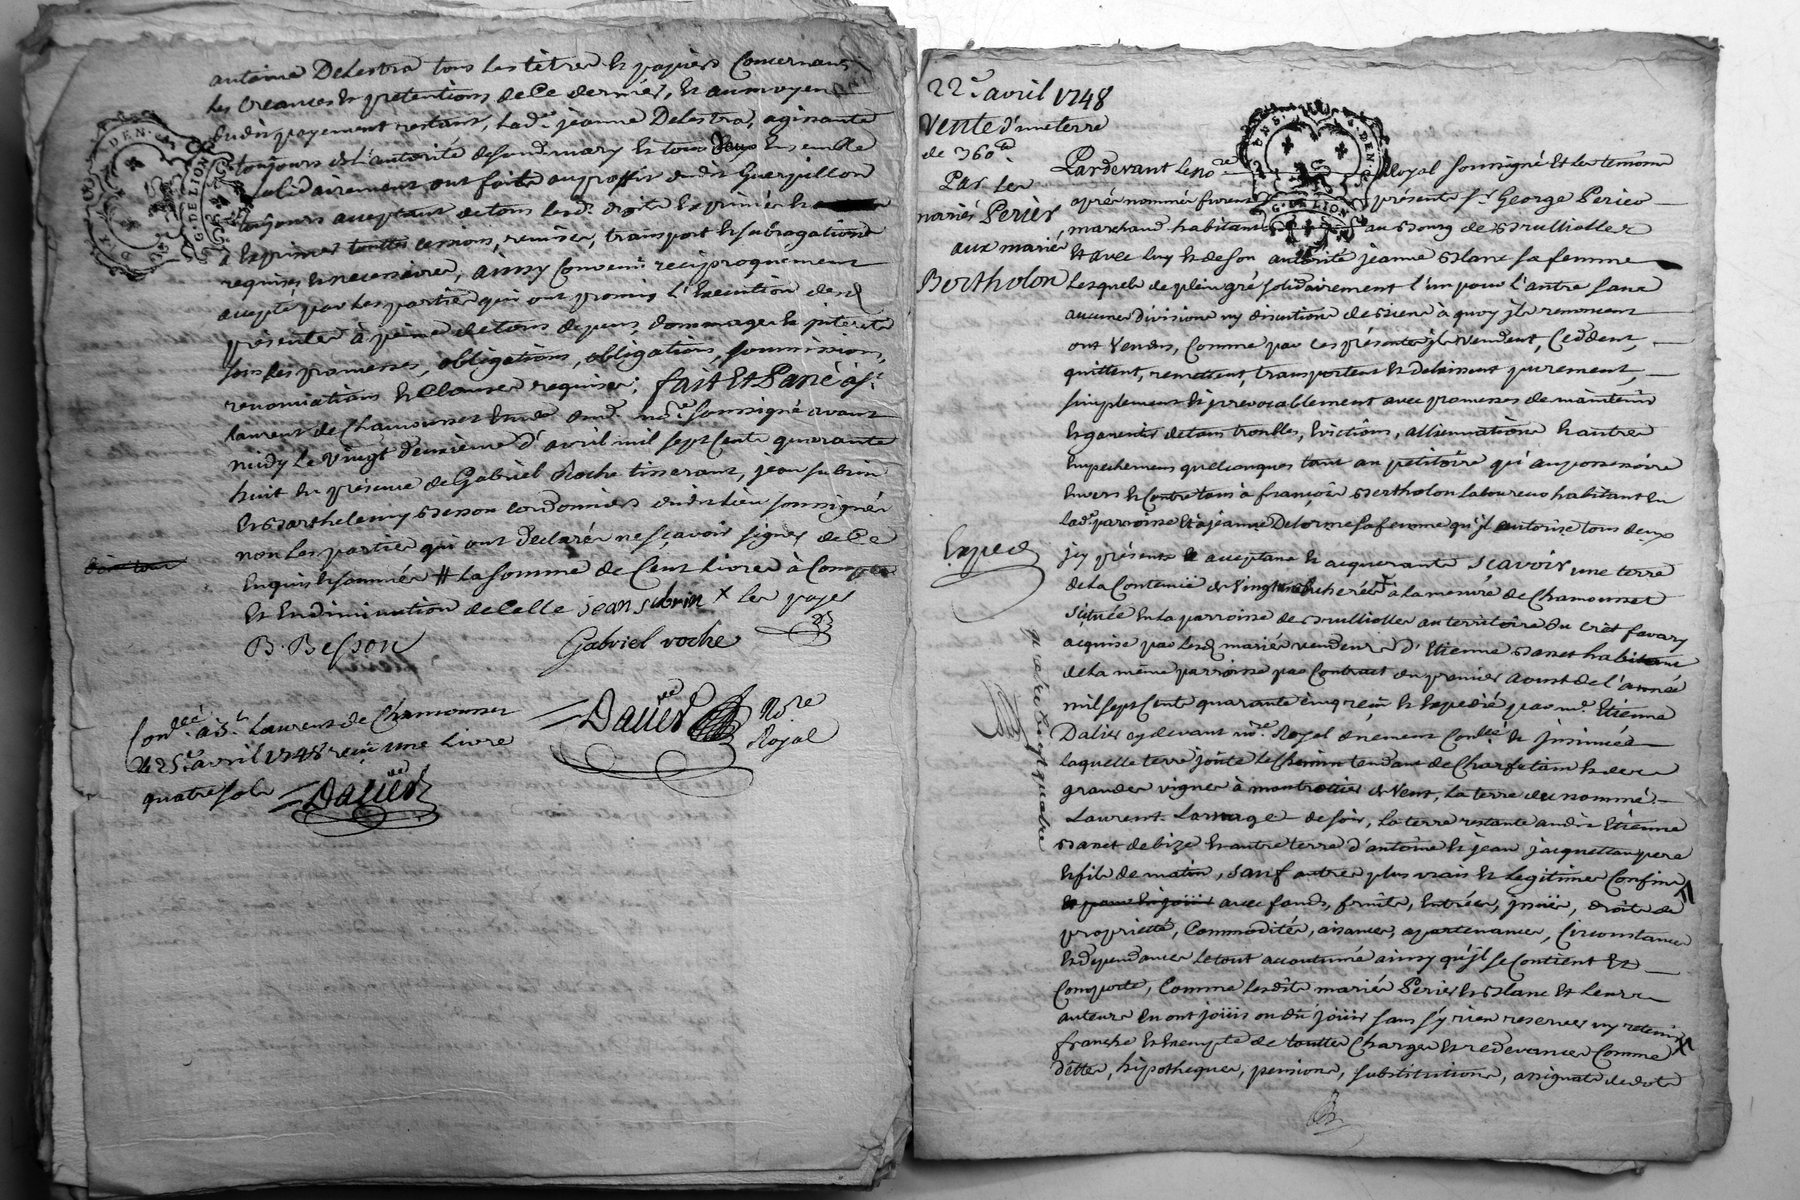 antoine Delestra tous les titres et papiers Concernans
les Creances et pretentions de Ce dernier, Et au moyen
dudit payement restant, lad.e jeanne Delestra, agissante
toujours de l'autorité de sond. mary Et tous deux Ensemble
solidairement ont fait au proffit dudit Guerpillon
toujours acceptant de tous lesd. droits Exprimés Et
à Exprimer touttes cessions, remises, transport et subrogations
requises et necessaires, ainsy Convenu reciproquement
accepté par les parties qui ont promis l'Execution desd.
presentes à peine de tous depens, dommages et interets
sous les promesses, obligations, obligations, soumissions,
renonciations et Clauses requises; fait Et Passé à St.
laurent de Chamousset Etude dud. no.re soussigné avant
midy le vingt deuxieme d'avril mil sept Cents quarante
huit En présence de Gabriel Roche tisserant, jean subrin
Et Barthelemy Besson cordonniers dudit lieu soussignés
non les parties qui ont declaré ne sçavoir signer de Ce
Enquis et sommés # la somme de Cent livres à Compte
Et En diminution de Celle jean subrin x les payer
B. Besson
Gabriel roche
Daliér No.re
Royal
Con.llé à St. Laurent de Chamousset
le 25e. avril 1748 reçu une livre
quatre sols Daliér
22e. avril 1748
Vente d'une terre
de 360 lt.
Par les
mariés Perier,
aux mariés
Bertholon
Exped
Pardevant le no.re Royal soussigné Et les temoins
après nommés furent présents Sr. George Perier
marchand habitant au Bourg de Brulliolles
Et avec luy Et de son autorité jeanne Blanc sa femme
Lesquels de plein gré solidairement l'un pour l'autre sans
aucune division ny discution de biens à quoy ils renoncent
ont Vendus, Comme par ces présentes ils Vendent, Ceddent,
quittent, remettent, transportent et delaissent purement,
simplement et irrevocablement avec promesses de maintenir
Et garentir de tous troubles, Evictions, allienations Et autres
Empechemens quelconques tant au petitoire qu'au possessoire
Envers Et Contre tous à françois Bertholon laboureur habitant En
lad. parroisse Et à jeanne Delorme sa femme qu'il autorise tous deux
icy présents et acceptans Et acquerants Sçavoir une terre
de la Contenüe de Vingt à la mesure de Chamousset
Située En la parroisse de Brulliolles au territoire du Crêt favary
acquise par lesd. mariés vendeurs d'Etienne Banet habitant
de la même parroisse par Contract du premier Aoust de l'année
mil sept Cents quarante Cinq reçu Et Expedié par me. Etienne
Dalier cy devant no.re Royal duement Con.llé Et insinué
laquelle terre joint le Chemin tendant de Charfetain Et des
grandes vignes à montrottier de Vent, la terre du nommé
Laurent Larnage de soir, la terre restante audit Etienne
Banet de bize Et autre terre d'antoine Et jean jacquettan pere
Et fils de matin, sauf autres plus vrais Et legitimes Confins
Et pour En joüir avec fonds, fruits, Entrées, issues, droits de
proprieté, Commodités, aisances, apartenances, Circonstances
Et dependances le tout accoutumé ainsy qu'il se Contient Et
Comporte, Comme lesdits mariés Perier Et Blanc Et leurs
auteurs En ont joüi ou dû joüir sans s'y rien reserver ny retenir
franche Et Exempte de touttes Charges Et redevances Comme
dettes, hipotheques, pensions, substitutions, assignats de dots